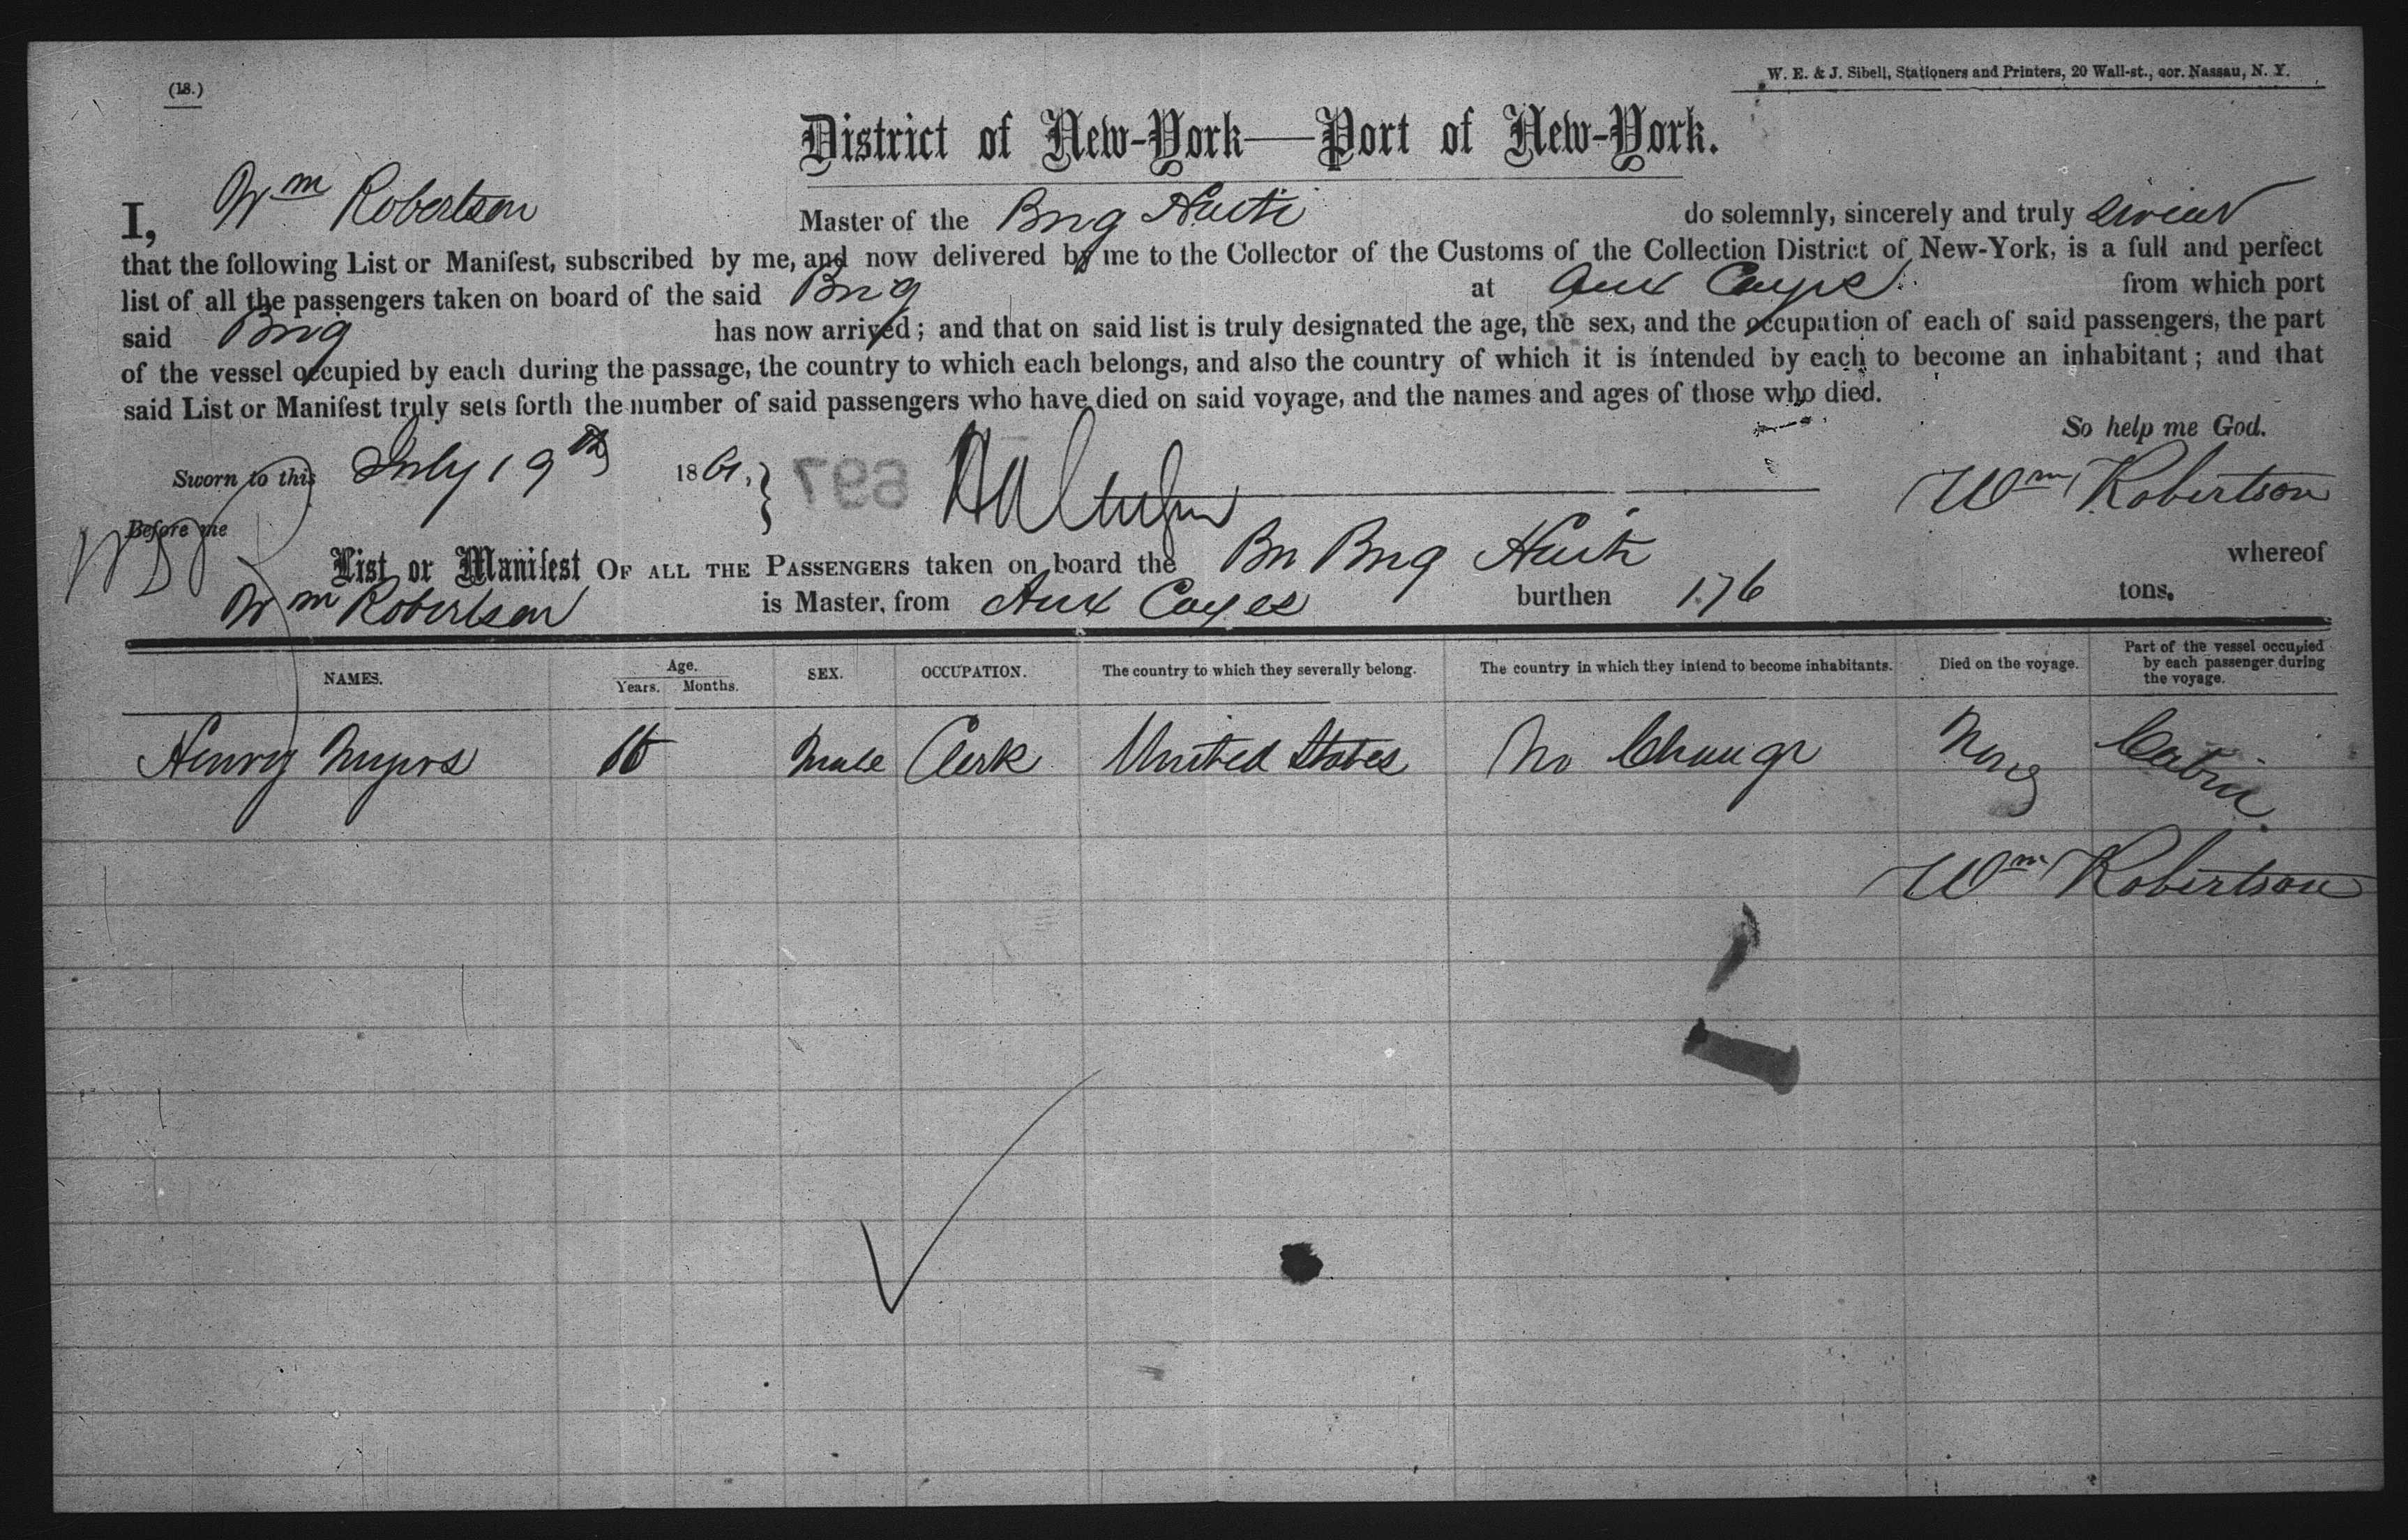 (18.)
W. E. & J. Sibell, Stationers and Printers, 20 Wall-st., cor. Nassau, N. Y.
District of New-York—Port of New-York.
I, Wm Robertson Master of the Brig Haiti do solemnly, sincerely and truly swear
that the following List or Manifest, subscribed by me, and now delivered by me to the Collector of the Customs of the Collection District of New-York, is a full and perfect
list of all the passengers taken on board of the said Brig at Aux Cayes from which port
said Brig has now arrived; and that on said list is truly designated the age, the sex, and the occupation of each of said passengers, the part
of the vessel occupied by each during the passage, the country to which each belongs, and also the country of which it is intended by each to become an inhabitant; and that
said List or Manifest truly sets forth the number of said passengers who have died on said voyage, and the names and ages of those who died.
So help me God.
Sworn to this July 19th 1861. } 697 Wm Robertson
Before me
List or Manifest OF ALL THE PASSENGERS taken on board the Br Brig Haiti whereof
Wm Robertson is Master, from Aux Cayes burthen 176 tons.
NAMES. Age. Years. Months. SEX. OCCUPATION. The country to which they severally belong. The country in which they intend to become inhabitants. Died on the voyage. Part of the vessel occupied by each passenger during the voyage.
Henry Myers Male Clerk United States No Change None Cabin.
Wm Robertson